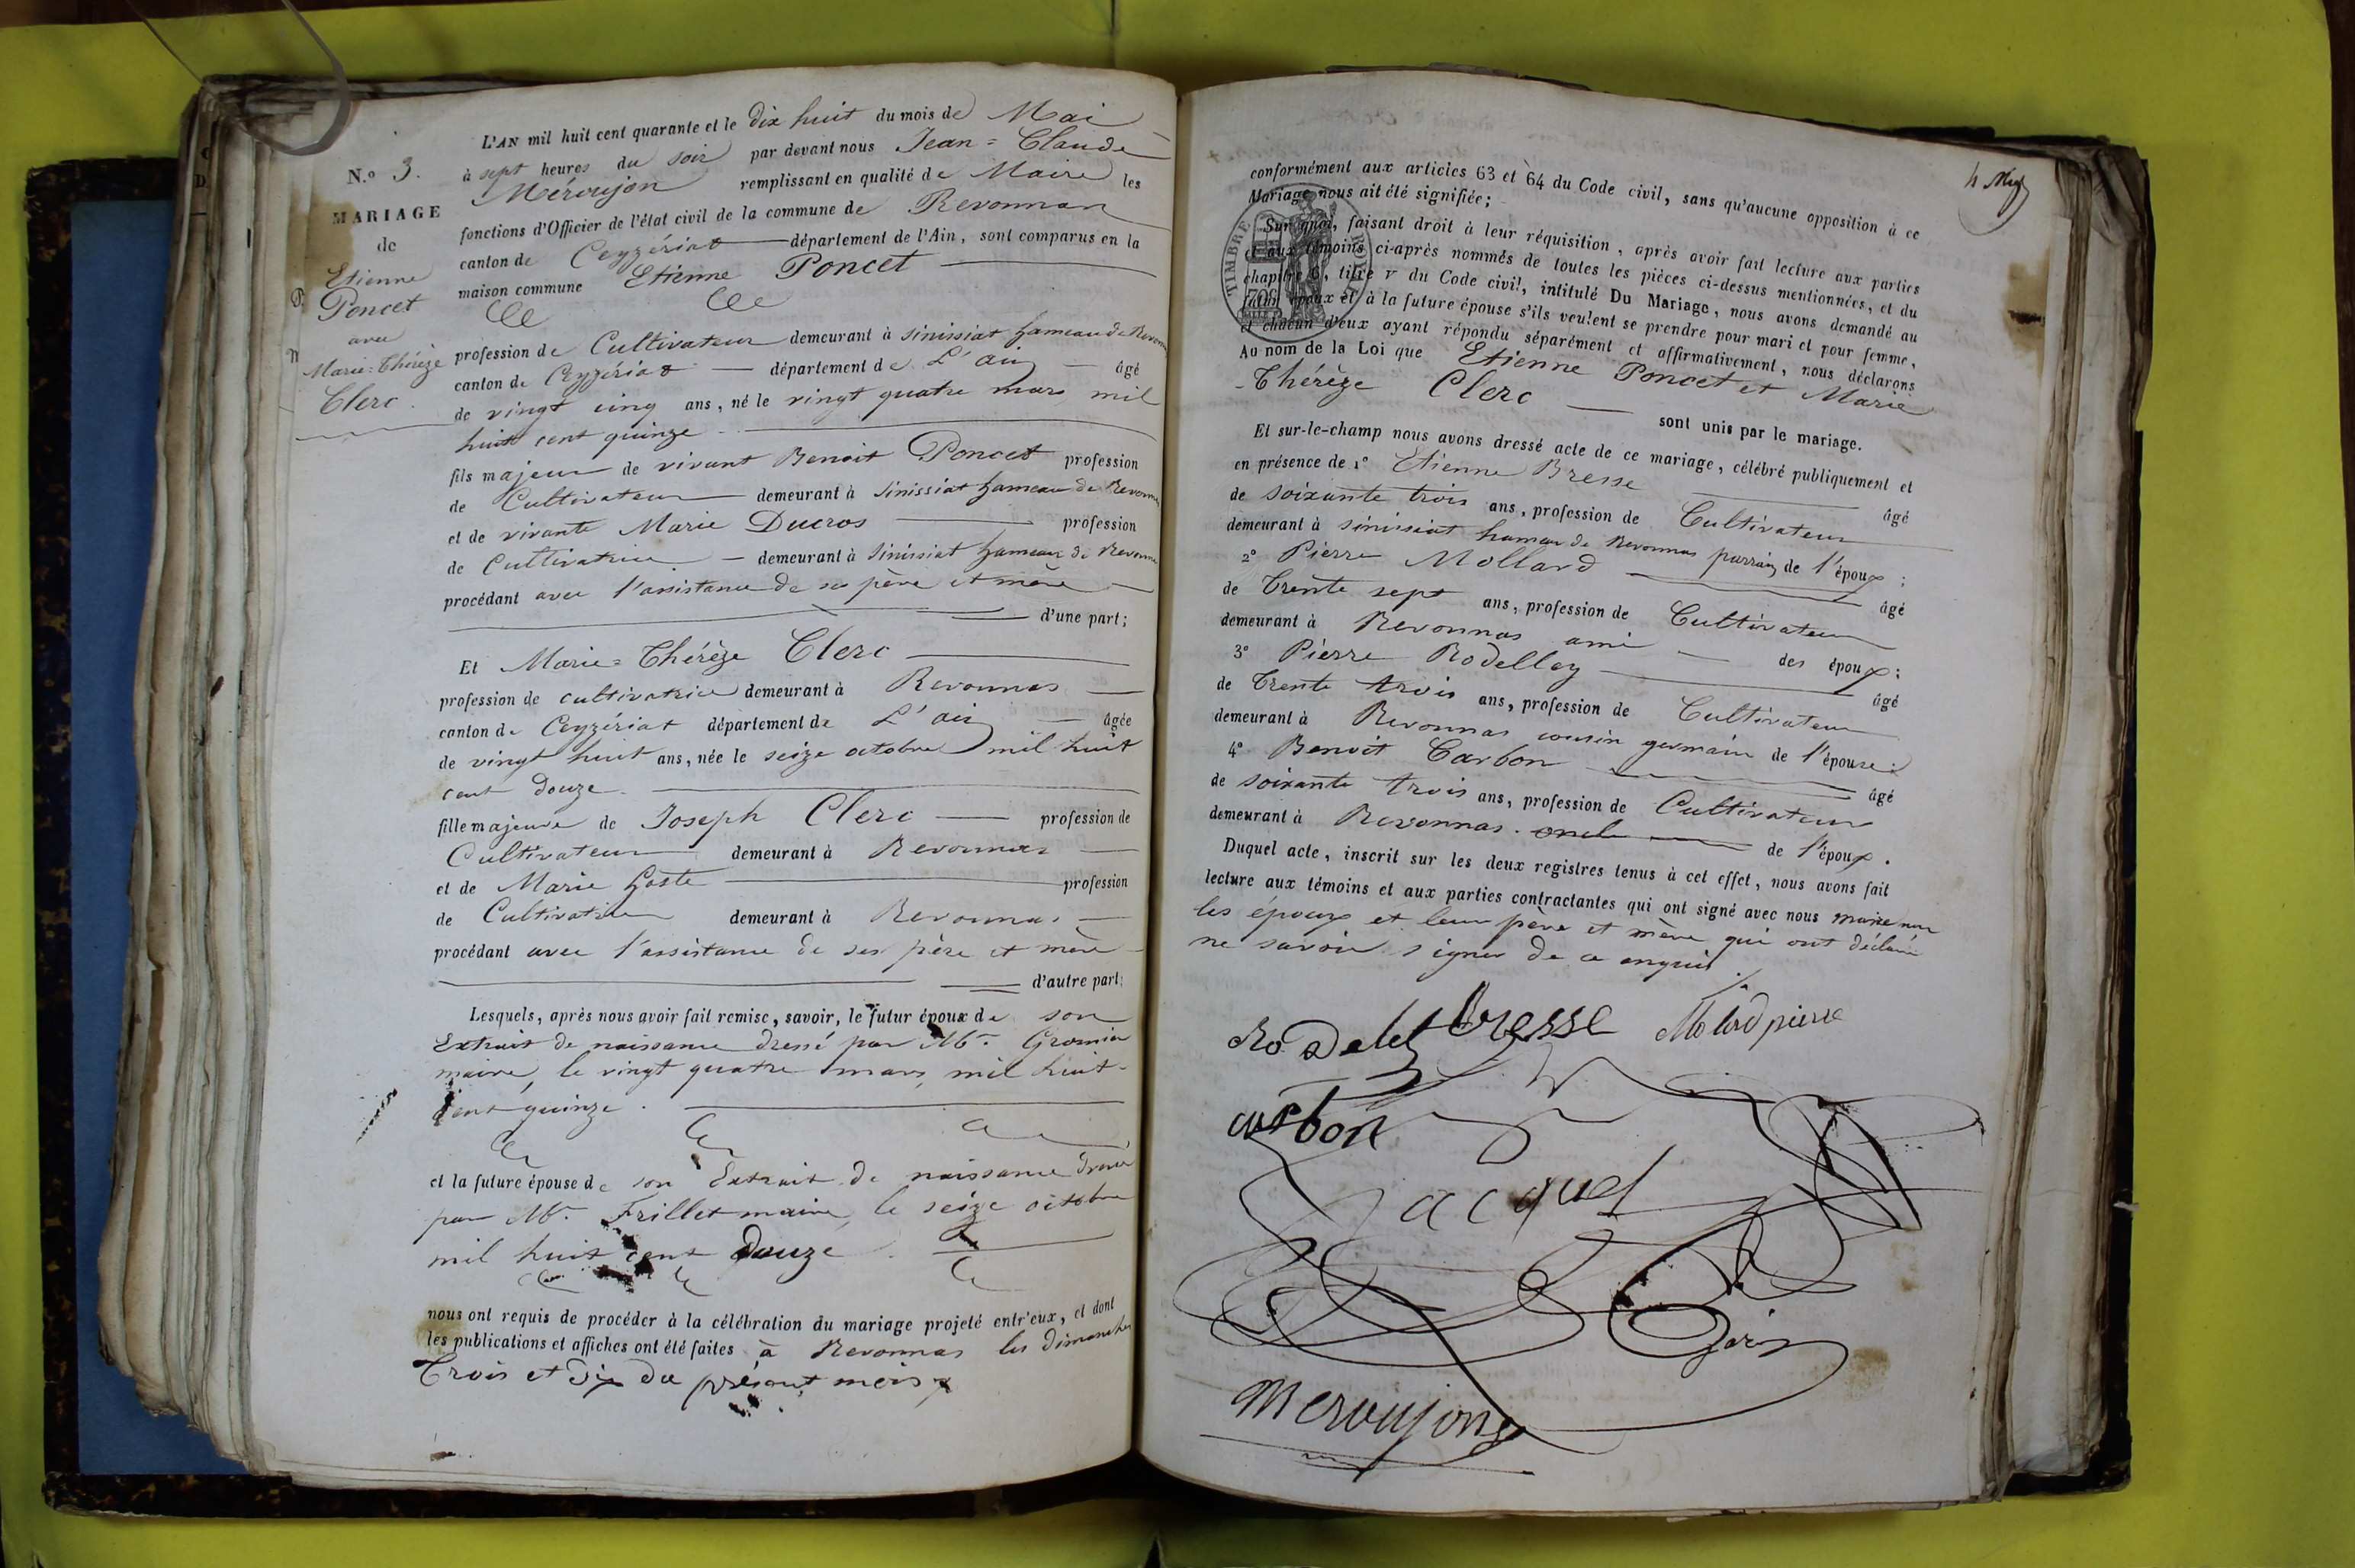 N.o 3.
MARIAGE
de
Etienne
Poncet
avec
Marie=Thérèze
Clerc.
L'AN mil huit cent quarante et le dix huit du mois de Mai
à sept heures du soir par devant nous Jean=Claude
Meroujon remplissant en qualité de Maire les
fonctions d'Officier de l'état civil de la commune de Revonnas
canton de Ceyzériat département de l'Ain, sont comparus en la
maison commune Etienne Poncet
profession de Cultivateur demeurant à sinissiat hameau de Revonnas
canton de Ceyzériat département de L'ain âgé
de vingt cinq ans, né le vingt quatre mars mil
huit cent quinze
fils majeur de vivant Benoit Poncet profession
de Cultivateur demeurant à sinissiat hameau de Revonnas
et de vivante Marie Ducros profession
de Cultivatrice demeurant à sinissiat hameau de Revonnas
procédant avec l'assistance de ses père et mère
d'une part;
Et Marie=Thérèze Clerc
profession de cultivatrice demeurant à Revonnas
canton de Ceyzériat département de L'ain âgée
de vingt huit ans, née le seize octobre mil huit
cent douze.
fille majeure de Joseph Clerc profession de
Cultivateur demeurant à Revonnas
et de Marie Goste profession
de Cultivatrice demeurant à Revonnas
procédant avec l'assistance de ses père et mère
d'autre part;
Lesquels, après nous avoir fait remise, savoir, le futur époux de son
Extrait de naissance dressé par Mr. Gromier
maire, le vingt quatre mars, mil huit-
cent quinze.
et la future épouse de son Extrait de naissance dressé
par Mr. Frillet maire, le seize octobre
mil huit cent douze.
nous ont requis de procéder à la célébration du mariage projeté entr'eux, et dont
les publications et affiches ont été faites à Revonnas les dimanches
Trois et dix du présent mois
conformément aux articles 63 et 64 du Code civil, sans qu'aucune opposition à ce
Mariage nous ait été signifiée;
Sur quoi, faisant droit à leur réquisition, après avoir fait lecture aux parties
et aux témoins ci-après nommés de toutes les pièces ci-dessus mentionnées, et du
chapitre 6, titre V du Code civil, intitulé Du Mariage, nous avons demandé au
futur époux et à la future épouse s'ils veulent se prendre pour mari et pour femme,
et chacun d'eux ayant répondu séparément et affirmativement, nous déclarons
Au nom de la Loi que Etienne Poncet et Marie
-Thérèze Clerc sont unis par le mariage.
Et sur-le-champ nous avons dressé acte de ce mariage, célébré publiquement et
en présence de 1° Etienne Bresse âgé
de soixante trois ans, profession de Cultivateur
demeurant à sinissiat hameau de Revonnas parrain de l'époux;
2° Pierre Mollard âgé
de Trente sept ans, profession de Cultivateur
demeurant à Revonnas ami des époux;
3° Pierre Rodelley âgé
de Trente trois ans, profession de Cultivateur
demeurant à Revonnas cousin germain de l'épouse;
4° Benoit Carbon âgé
de soixante trois ans, profession de Cultivateur
demeurant à Revonnas. oncle de l'époux.
Duquel acte, inscrit sur les deux registres tenus à cet effet, nous avons fait
lecture aux témoins et aux parties contractantes qui ont signé avec nous maire non
les époux et leur père et mère qui ont déclaré
ne savoir signer de ce enquis
TIMBRE ROYAL
Rodelet Bresse Molard pierre
carbon
Jacquet
Meroujon